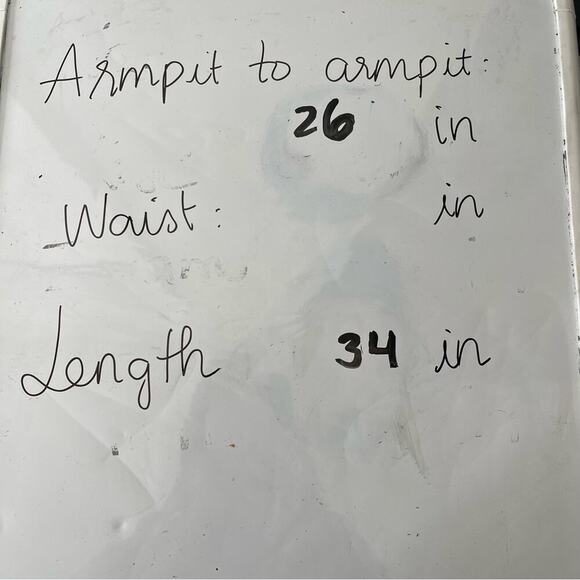 Armpit to armpit:
26 in
Waist: in
Length 34 in